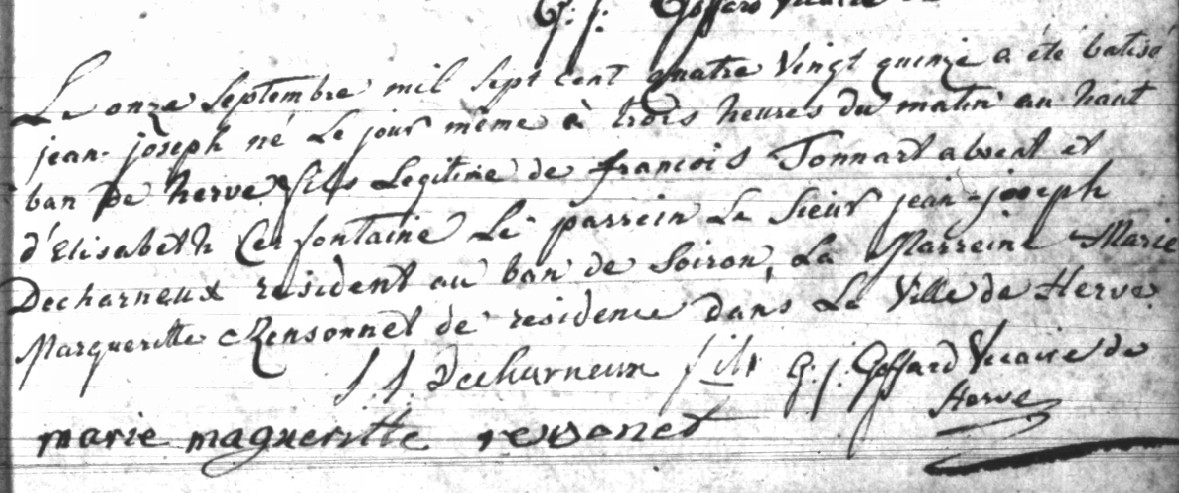 G: j: Goffard Vicaire de
Le onze Septembre mil Sept cent quatre Vingt quinze a été batisé
jean-joseph né Le jour même à trois heures du matin au haut
ban de herve fils Legitime de francois Tonnart absent et
d'Elisabeth Cerfontaine Le parrein Le Sieur jean-joseph
Decharneux resident au ban de Soiron, La Marreine Marie
Margueritte Rensonnet de residence dans La Ville de Herve.
J. J. Decharneux fils G: j: Goffard Vicaire de
Herve
marie magueritte rensonet